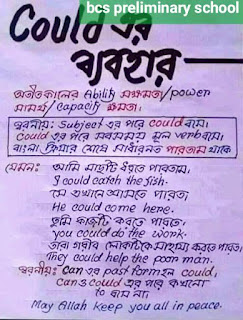 bcs preliminary school
Could এর
ব্যবহার
অতীতকালের Ability সক্ষমতা/power
সামর্থ্য/capacity ক্ষমতা।
স্মরনীয়: Subject এর পরে could বসে।
could এর পরে সবসময় মূল verb বসে।
বাংলা ক্রিয়ার শেষে সাধারনত পারতাম থাকে
যেমন: আমি মাছটি ধরতে পারতাম,
I could catch the fish.
সে এখানে আসতে পারত,
He could come here.
তুমি কাজটি করতে পারতে,
you could do the work.
তারা গরীব লোকটিকে সাহায্য করতে পারত,
They could help the poor man.
স্মরনীয়: Can এর past form হল could,
Can ও could এর পরে কখনো
to বসে না।
May Allah keep you all in peace.